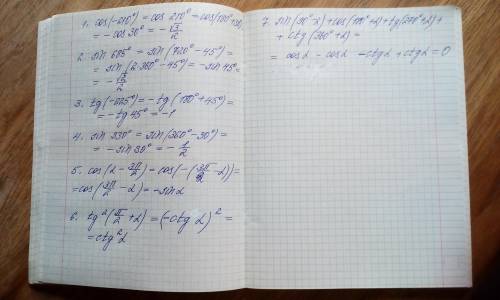 1. cos(-210°) = cos 210° = cos(180°+30°)
= -cos 30° = -√3/2
2. sin 675° = sin(720° - 45°) =
= sin(2·360° - 45°) = -sin 45° =
= -√2/2
3. tg(-225°) = -tg(180° + 45°) =
= -tg 45° = -1
4. sin 330° = sin(360° - 30°) =
= -sin 30° = -1/2
5. cos(α - 3π/2) = cos(-(3π/2 - α)) =
= cos(3π/2 - α) = -sin α
6. tg²(π/2 + α) = (-ctg α)² =
= ctg² α
7. sin(90° - α) + cos(180° + α) + tg(270° + α) +
+ ctg(360° + α) =
= cos α - cos α - ctg α + ctg α = 0